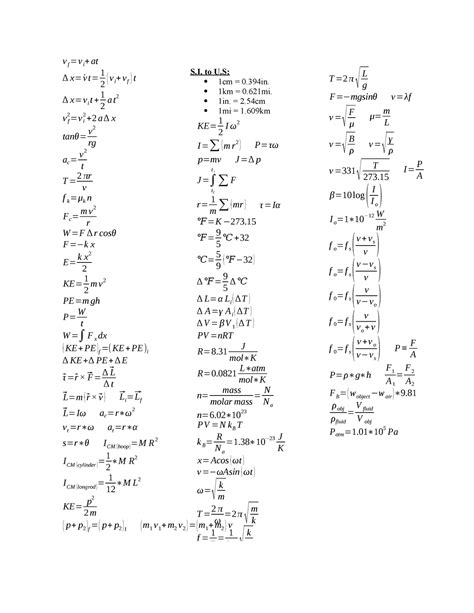 v_f = v_i + at
Δx = v̄t = 1/2 (v_i + v_f) t
Δx = v_i t + 1/2 at²
v_f² = v_i² + 2aΔx
tanθ = v²/rg
a_c = v²/t
T = 2πr/v
f_k = μ_k n
F_c = mv²/r
W = FΔr cosθ
F = −kx
E = kx²/2
KE = 1/2 mv²
PE = mgh
P = W/t
W = ∫F_x dx
(KE + PE)_f = (KE + PE)_i
ΔKE + ΔPE + ΔE
τ⃗ = r⃗ × F⃗ = ΔL⃗/Δt
L⃗ = m(r⃗ × v⃗) L⃗_i = L⃗_f
L⃗ = Iω a_c = r∗ω²
v_t = r∗ω a_t = r∗α
s = r∗θ I_CM(hoop) = MR²
I_CM(cylinder) = 1/2 ∗ MR²
I_CM(longrod) = 1/12 ∗ ML²
KE = p²/2m
(p + p_2)_f = (p + p_2)_i (m_1 v_1 + m_2 v_2) = (m_1 + m_2) v
S.I. to U.S:
• 1cm = 0.394in.
• 1km = 0.621mi.
• 1in. = 2.54cm
• 1mi = 1.609km
KE = 1/2 Iω²
I = ∑(mr²) P = τω
p = mv J = Δp
J = ∫ ∑F
r = 1/m ∑(mr) τ = Iα
°F = K − 273.15
°F = 9/5 °C + 32
°C = 5/9 (°F − 32)
Δ°F = 9/5 Δ°C
ΔL = αL_i(ΔT)
ΔA = γA_i(ΔT)
ΔV = βV_i(ΔT)
PV = nRT
R = 8.31 J/mol∗K
R = 0.0821 L∗atm/mol∗K
n = mass/molar mass = N/N_a
n = 6.02∗10²³
PV = N k_B T
k_B = R/N_a = 1.38∗10⁻²³ J/K
x = Acos(ωt)
v = −ωAsin(ωt)
ω = √(k/m)
T = 2π/ω = 2π√(m/k)
T = 2π√(L/g)
F = −mgsinθ v = λf
v = √(F/μ) μ = m/L
v = √(B/ρ) v = √(γ/ρ)
v = 331√(T/273.15) I = P/A
β = 10log(I/I_o)
I_o = 1∗10⁻¹² W/m²
f_o = f_s((v + v_s)/v)
f_o = f_s((v − v_s)/v)
f_o = f_s(v/(v − v_o))
f_o = f_s(v/(v_o + v))
f_o = f_s((v + v_o)/(v − v_s)) P = F/A
P = ρ∗g∗h F_1/A_1 = F_2/A_2
F_B = (w_object − w_air)∗9.81
ρ_obj/ρ_fluid = V_fluid/V_obj
P_atm = 1.01∗10⁵ Pa